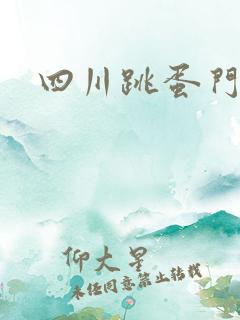 四川跳蛋門
仰大星
未经同意禁止转载